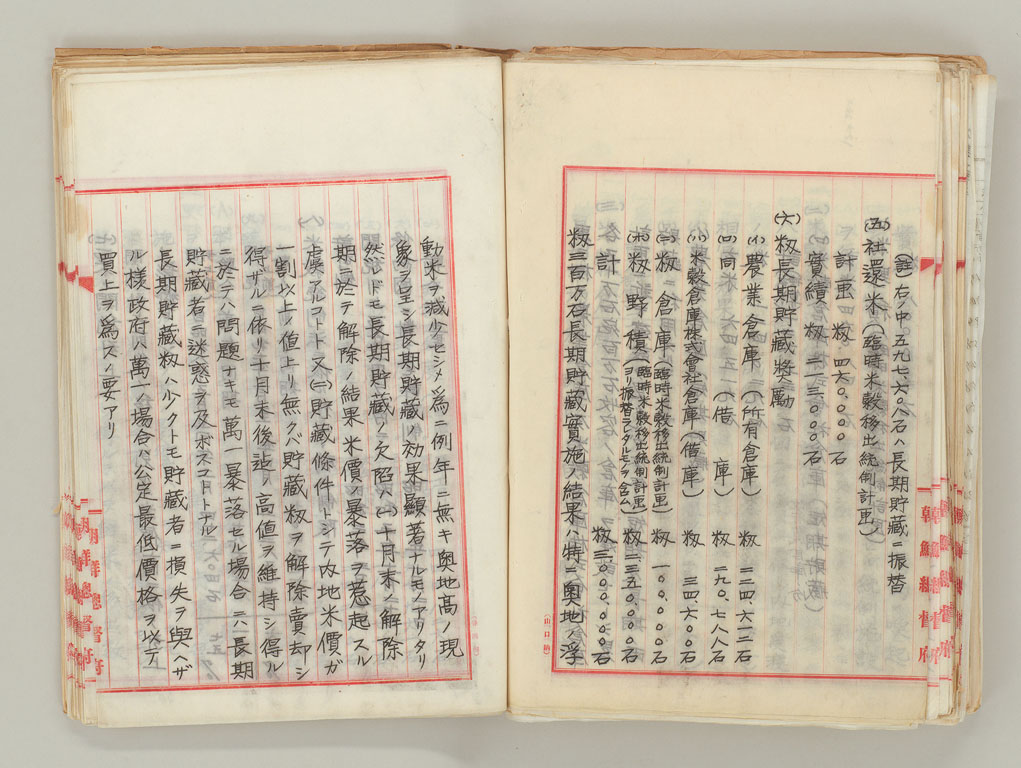 (註)右ノ中五九七、六〇八石ハ長期貯藏ニ振替
(五)社還米(臨時米穀移出統制計画)
計画 籾 四六〇、〇〇〇石
實績 籾 二二三、〇〇〇石
(六)籾長期貯藏奬勵
(イ)農業倉庫(所有倉庫) 籾 二二四、六二二石
(ロ)同 (借庫) 〃 二九〇、七八八石
(ハ)米穀倉庫株式會社倉庫(借庫) 籾 三四、六〇〇石
(ニ)籾倉庫(臨時米穀移出統制計画) 籾 一〇〇、〇〇〇石
(ホ)籾野積(臨時米穀移出統制計画ヨリ振替ヲタルモノヲ含ム) 籾 二、三五〇、〇〇〇石
計 籾 三、〇〇〇、〇〇〇石
籾三百万石長期貯藏實施ノ結果ハ特ニ奧地ノ浮
動米ヲ減少セシメ為ニ例年ニ無キ奧地高ノ現
象ヲ呈シ長期貯藏ノ効果顯著ナルモノアリタリ
然レドモ長期貯藏ノ欠陷ハ(一)十月末ノ解除
期ニ於テ解除ノ結果米價ノ暴落ヲ惹起スル
虞アルコトト又(二)貯藏條件トシテ内地米價ガ
一割以上ノ値上リ無クバ貯藏籾ヲ解除賣却シ
得ザルニ依リ十月末後迠ノ高値ヲ維持シ得ル
ニ於テハ問題ナキモ萬一暴落セル場合ニハ長期
貯藏者ニ迷惑ヲ及ボスコトトナル
長期貯藏籾ハ少クトモ貯藏者ニ損失ヲ與ヘザ
ル樣政府ハ萬一ノ場合ハ公定最低價格ヲ以テ
買上ヲ爲スノ要アリ
朝鮮總督府
朝鮮總督府